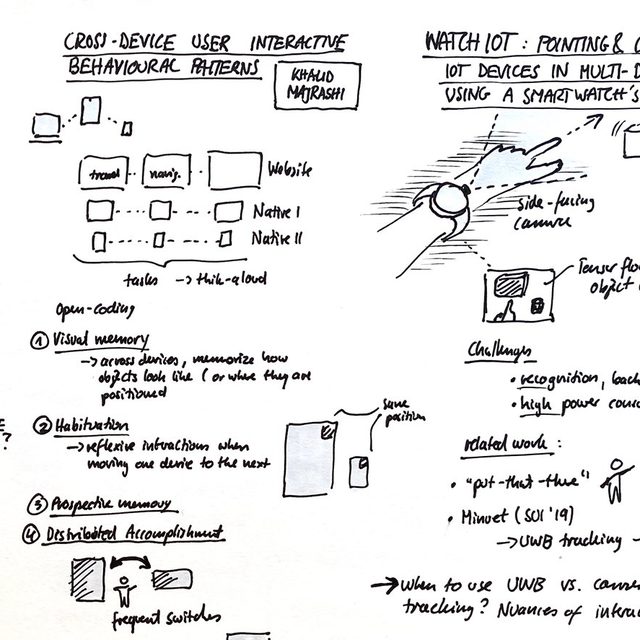 CROSS-DEVICE USER INTERACTIVE
BEHAVIOURAL PATTERNS
KHALID
MAJRASHI
travel
navig.
Website
Native I
Native II
tasks -> think-aloud
Open-coding
① Visual memory
-> across devices, memorize how
objects look like (or where they are
positioned
② Habituation
-> reflexive interactions when
moving one device to the next
same
position
③ Prospective memory
④ Distributed Accomplishment
frequent switches
?
WATCH IOT: POINTING &
IOT DEVICES IN MULTI-D
USING A SMARTWATCH'S
side-facing
camera
Tensor flo
object
Challenges
• recognition, back
• high power consu
related work:
• "put-that-there"
• Minuet (SUI '19)
-> UWB tracking -
-> When to use UWB vs. camera
tracking? Nuances of intera